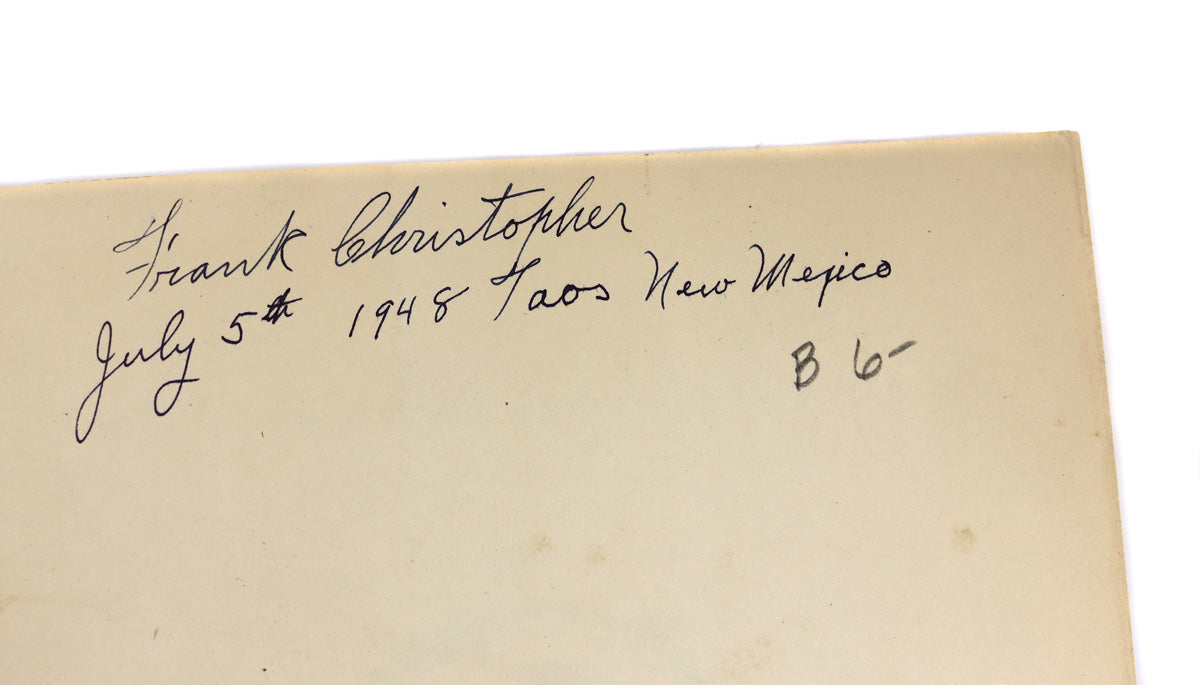 Frank Christopher
July 5th 1948 Taos New Mexico
B 6-